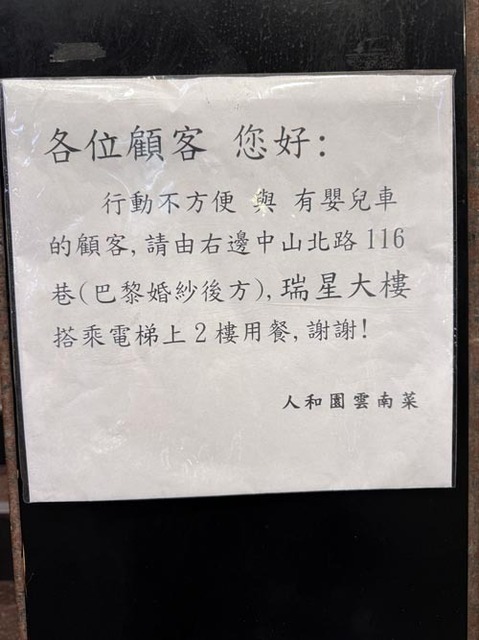 各位顧客 您好:
行動不方便 與 有嬰兒車
的顧客, 請由右邊中山北路 116
巷(巴黎婚紗後方), 瑞星大樓
搭乘電梯上 2 樓用餐, 謝謝!
人和園雲南菜